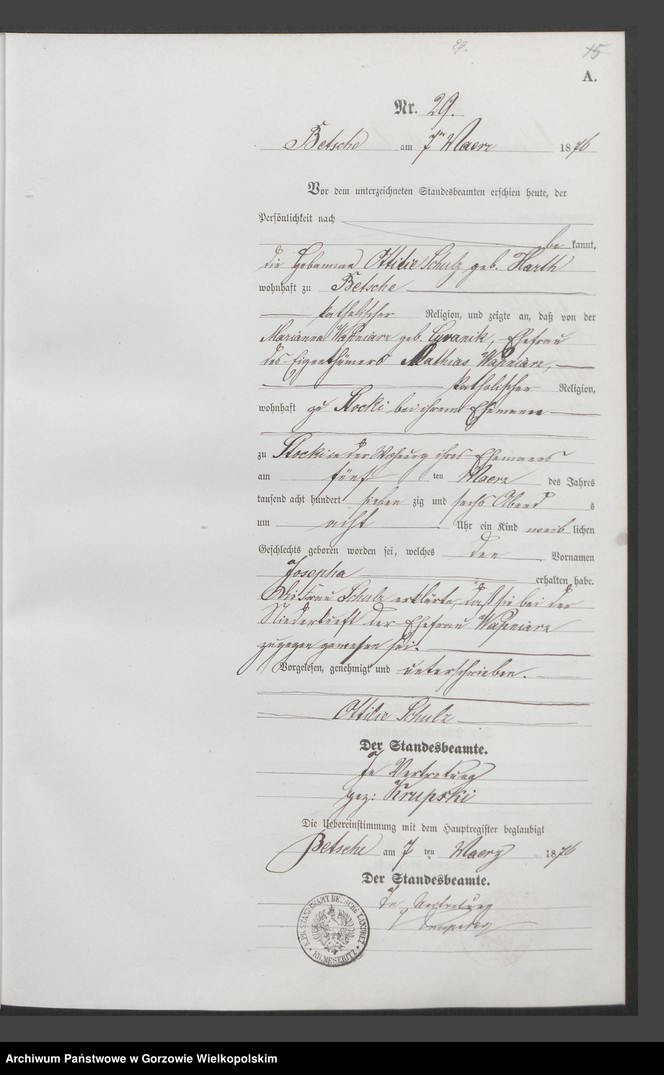 29.
15
A.
Nr. 29.
Betsche am 7ten Maerz 1876
Vor dem unterzeichneten Standesbeamten erschien heute, der
Persönlichkeit nach
be kannt,
die Hebamme Ottilie Schulz geb. Harth
wohnhaft zu Betsche
katholischer Religion, und zeigte an, daß von der
Marianna geb. Cyranik, Ehefrau
des Eigenthümers Mathias
katholischer Religion,
wohnhaft zu Stocki bei ihrem Ehemanne
zu Stocki in der Wohnung ihres Ehemanns
am fünf ten Maerz des Jahres
tausend acht hundert sieben zig und sechs Abend s
um acht Uhr ein Kind weib lichen
Geschlechts geboren worden sei, welches den Vornamen
Josepha erhalten habe.
Schulz erklärte, daß sie bei der
Niederkunft der Ehefrau
zugegen gewesen sei.
Vorgelesen, genehmigt und unterschrieben.
Ottilie Schulz
Der Standesbeamte.
In Vertretung
gez: Krupski
Die Uebereinstimmung mit dem Hauptregister beglaubigt
Betsche am 7 ten Maerz 1876
Der Standesbeamte.
In Vertretung
Krupski
Archiwum Państwowe w Gorzowie Wielkopolskim